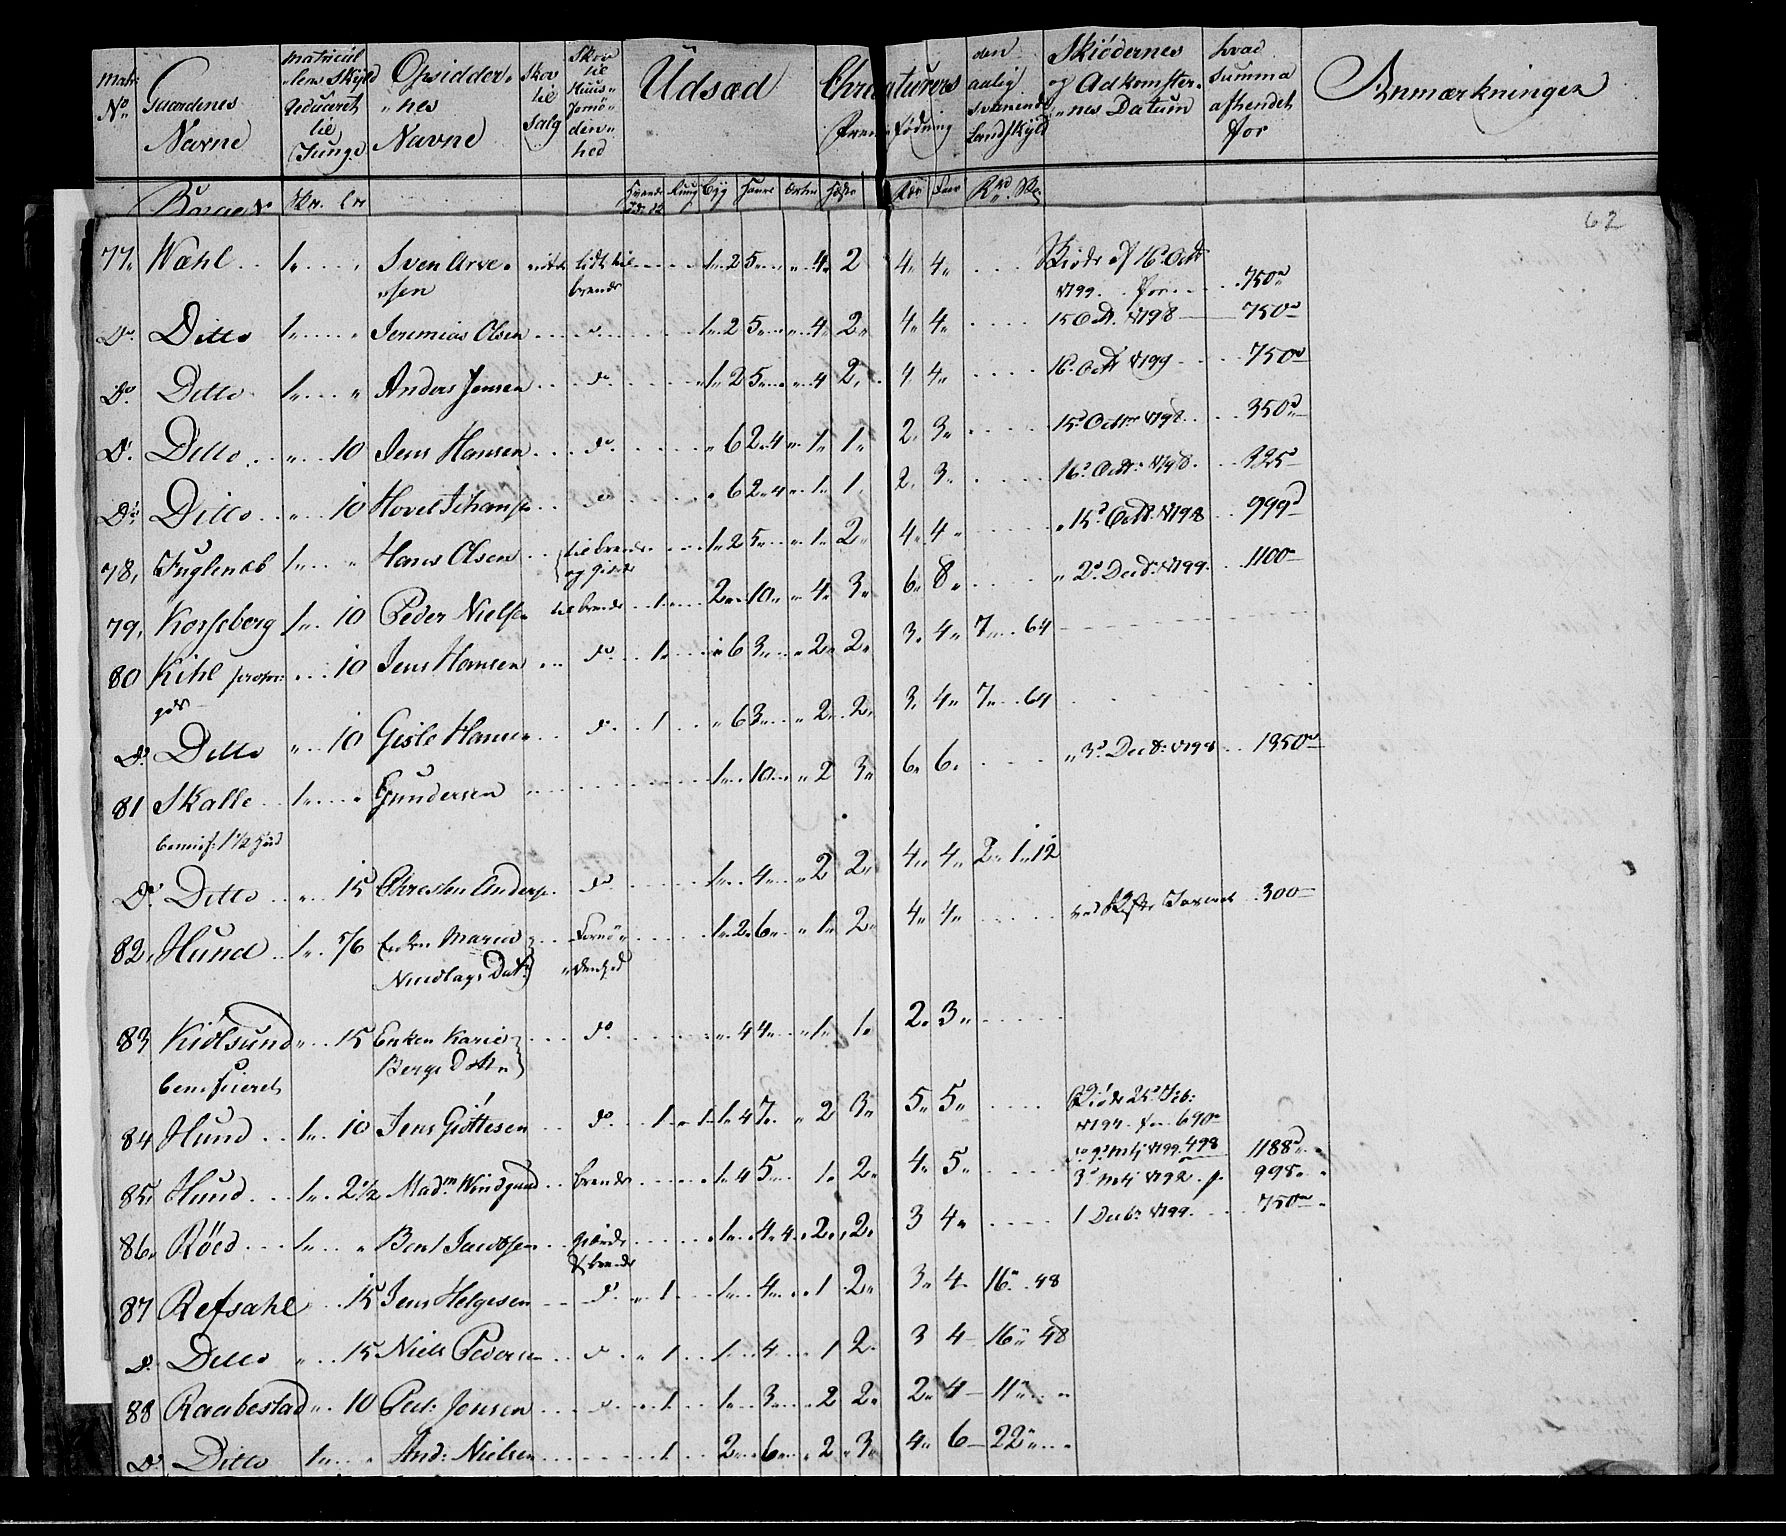 Matr: No
Gaardenes Navne
Matricul
lens Skyld
reduceret
til
Tunge
Opsidder
nes
Navne
Skov
til
Salg
Skov
til
Huus
fornø
den
hed
Udsæd
Chreaturers
Fremfødning
den
aarlig
svarende
Landskyld
Skiødernes
og Adkomster
nes Datum
hvad
Summa
afhendet
for
Anmærkninger
Hvede Rug Byg Havre Erter Heste Kør Faar Rd
62
77. Wæhl 1 " Sven Arve- lidt til 1 " 2 5 " 4 2 4 4 Skiøde af 16 Octr
sen brende 1799 for 750
Do Ditto 1 " Jeremias Olsen do 1 2 5 " 4 2 4 4 15 Oct. 1798 750
Do Ditto 1 " Anders Jensen do 1 2 5 " 4 2 4 4 16 Octr 1799 750
Do Ditto " 10 Jens Hansen do " 6 2 4 " 1 1 2 3 15 Octbr 1798 350
Do Ditto " 10 Hovel Johans do " 6 2 4 " 1 1 2 3 16 Octr 1798 325
78, Fuglenæb 1 " Hans Olsen til brende 1 2 5 " 1 2 4 4 15 Octr 1798 999
og gierde
79, Korseberg 1 10 Peder Niels til brende 1 2 10 " 4 3 6 8 2 Decbr 1799 1100
80 Kihl 10 Jens Hansen do 1 " 6 3 " 2 2 3 4 7 64
gds
Do Ditto " 10 Gisle Hansen do 1 " 6 3 " 2 2 3 4 7 64
81 Skalle 1 " Gundersen 1 10 " 2 3 6 6 3 Decbr 1798 1350
benif: 1 1/2 Hud
Do Ditto " 15 Christen Anders do 1 4 " 2 2 4 4 2 1 12
82, Hund 1 7/6 Enken Maria Fornø 1 2 6 " 1 2 4 4 300
Datr denhed
83 Kiølsund " 15 Enken Karie do " 4 4 " 1 1 2 3
beneficeret Berge Dattr
84 Hund 1 10 Jens Giøttesen do 1 " 1 1 4 7 " 2 3 5 5 Skiøde 25 Feb:
1794 for 690
1799 498 1188
85, Hund 1 2 1/2 Madm Windgaad brende 1 4 5 1 2 4 5 3 Mtj 1792 f. 998
86, Røed 1 " Bent Jacobsen gierde 1 4 4 2 2 3 4 1 Decbr 1799 750
& brende
87 Refsahl 15 Jens Helgesen do " 1 1 4 " 1 2 3 4 16 48
Do Ditto " 15 Niels Pedersen do " 1 1 4 1 2 3 4 16 48
88 Raabestad " 10 Ped: Jensen do 1 1 3 2 2 2 4 11 "
Do Ditto 1 " And: Nielsen 1 2 6 " 2 3 4 6 22 "